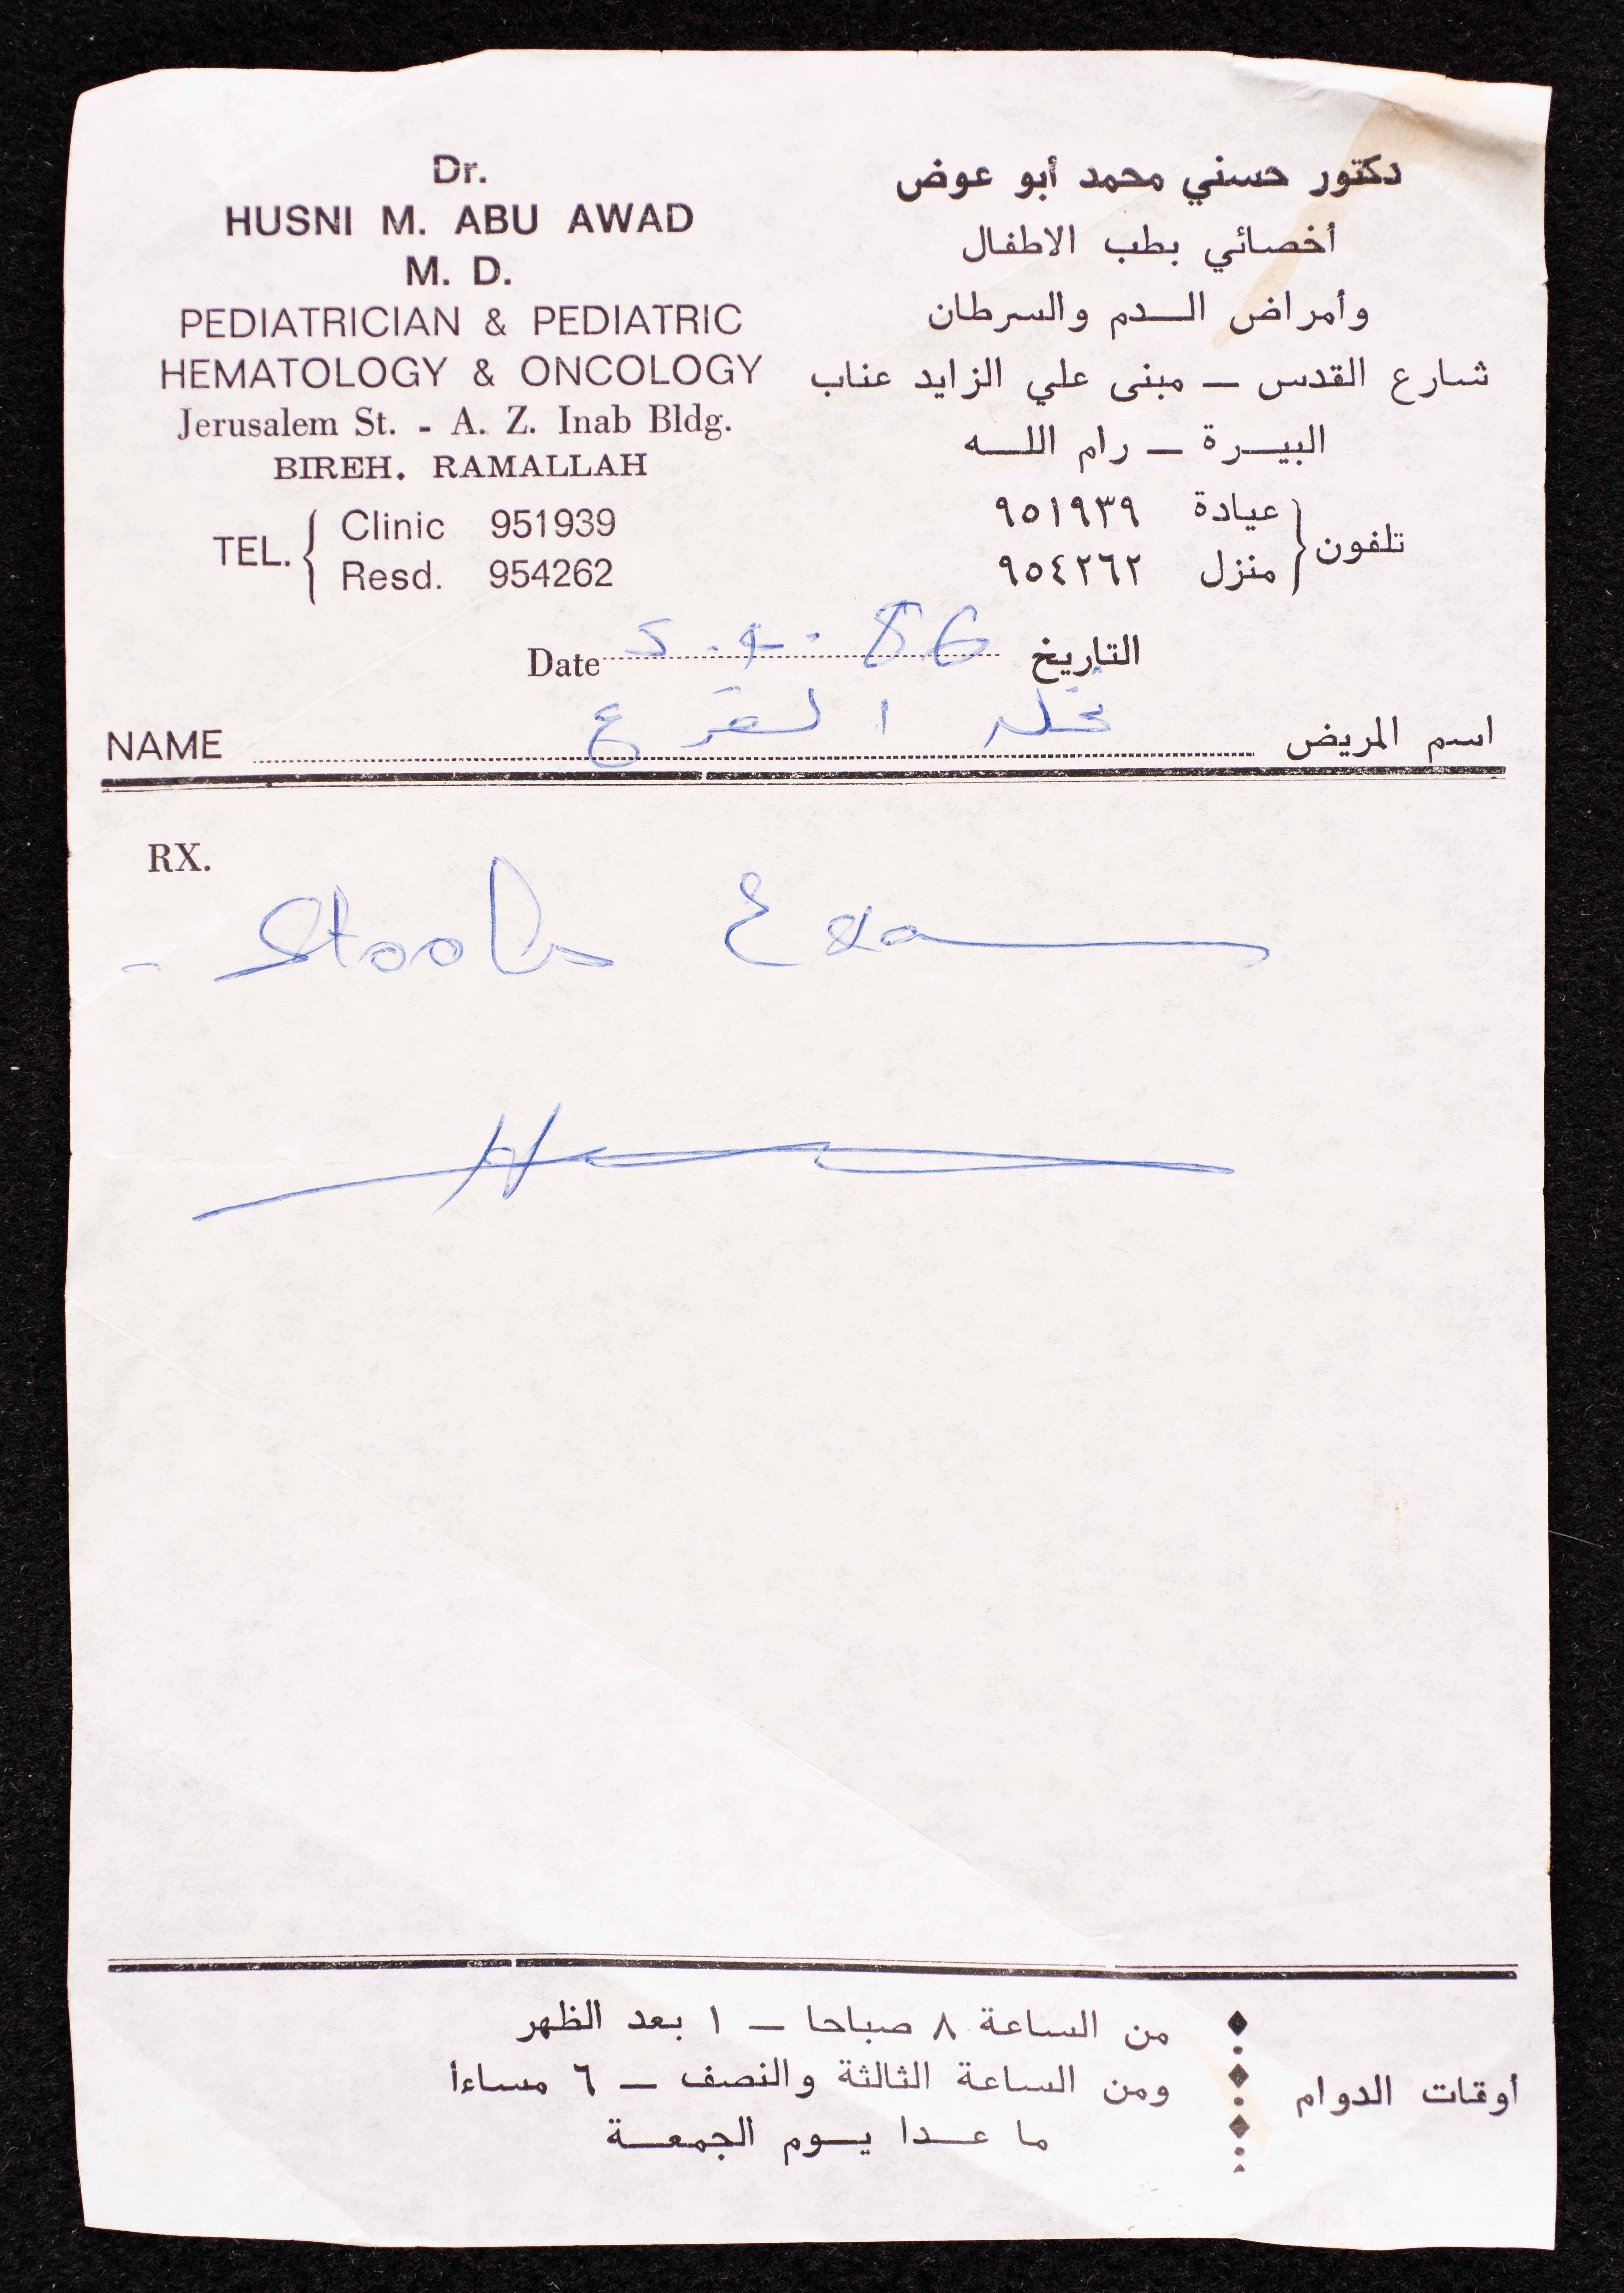 Dr.
HUSNI M. ABU AWAD
M. D.
PEDIATRICIAN & PEDIATRIC
HEMATOLOGY & ONCOLOGY
Jerusalem St. - A. Z. Inab Bldg.
BIREH. RAMALLAH
TEL.
Clinic 951939
Resd. 954262
دكتور حسني محمد أبو عوض
أخصائي بطب الاطفال
وأمراض الـدم والسرطان
شارع القدس – مبنى علي الزايد عناب
البيـرة – رام اللـه
تلفون
عيادة ٩٥١٩٣٩
منزل ٩٥٤٢٦٢
Date 86 التاريخ
NAME اسم المريض
RX.
- Stools Exam
أوقات الدوام
من الساعة ٨ صباحا – ١ بعد الظهر
ومن الساعة الثالثة والنصف – ٦ مساءا
ما عـدا يـوم الجمعـة